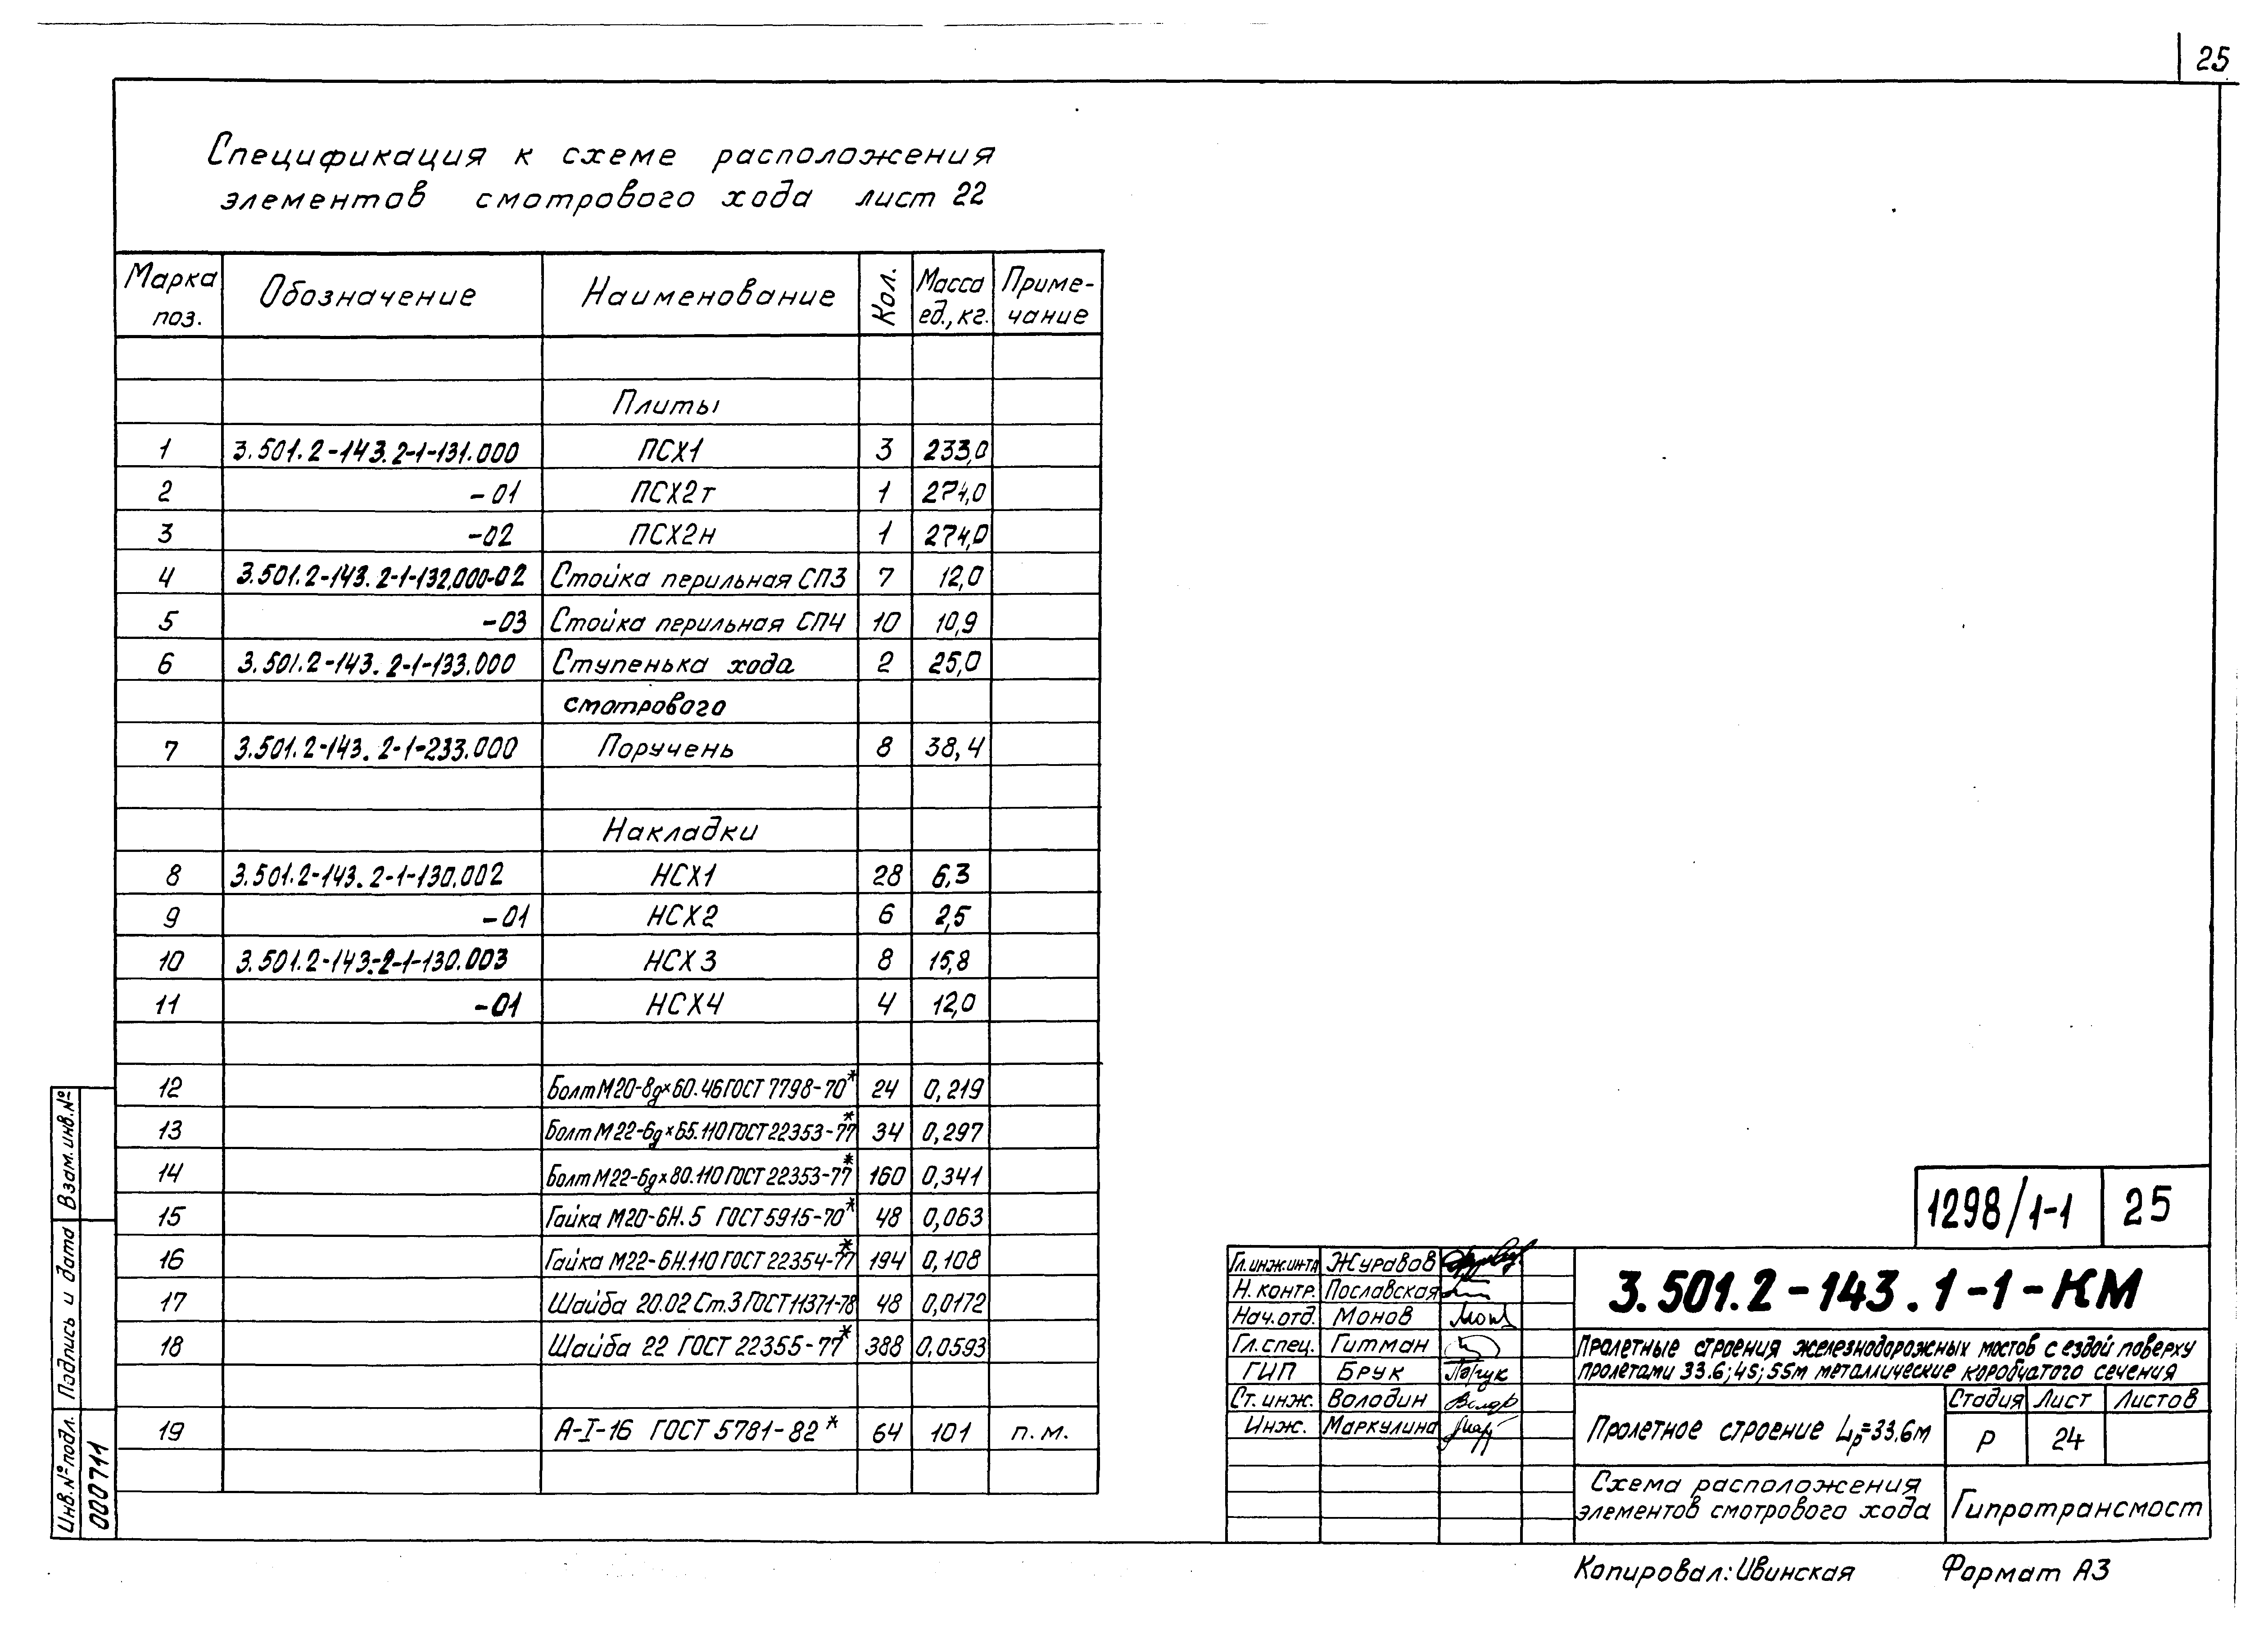 25
Спецификация к схеме расположения
элементов смотрового хода лист 22
Марка поз. Обозначение Наименование Кол. Масса ед., кг. Приме-чание
Плиты
1 3.501.2-143.2-1-131.000 ПСХ1 3 233,0
2 -01 ПСХ2т 1 274,0
3 -02 ПСХ2н 1 274,0
4 3.501.2-143.2-1-132.000-02 Стойка перильная СП3 7 12,0
5 -03 Стойка перильная СП4 10 10,9
6 3.501.2-143.2-1-133.000 Ступенька хода 2 25,0
смотрового
7 3.501.2-143.2-1-233.000 Поручень 8 38,4
Накладки
8 3.501.2-143.2-1-130.002 НСХ1 28 6,3
9 -01 НСХ2 6 2,5
10 3.501.2-143-2-1-130.003 НСХ3 8 15,8
11 -01 НСХ4 4 12,0
12 Болт М20-8gх60.46 ГОСТ 7798-70* 24 0,219
13 Болт М22-6gх65.110 ГОСТ 22353-77* 34 0,297
14 Болт М22-6gх80.110 ГОСТ 22353-77* 160 0,341
15 Гайка М20-6Н.5 ГОСТ 5915-70* 48 0,063
16 Гайка М22-6Н.110 ГОСТ 22354-77* 194 0,108
17 Шайба 20.02 Ст.3 ГОСТ 11371-78 48 0,0172
18 Шайба 22 ГОСТ 22355-77* 388 0,0593
19 А-I-16 ГОСТ 5781-82* 64 101 п.м.
Взам. инв. №
Подпись и дата
Инв. № подл.
000711
1298/1-1 25
Гл. инж. ин-та Журавов
Н. контр. Пославская
Нач. отд. Монов
Гл. спец. Гитман
ГИП Брук
Ст. инж. Володин
Инж. Маркулина
3.501.2-143.1-1-КМ
Пролетные строения железнодорожных мостов с ездой поверху
пролетами 33.6; 45; 55м металлические коробчатого сечения
Пролетное строение Lp=33.6м
Стадия Лист Листов
Р 24
Схема расположения
элементов смотрового хода
Гипротрансмост
Копировал: Ивинская Формат А3